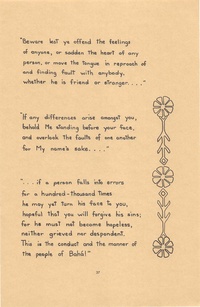 "Beware lest ye offend the feelings
of anyone, or sadden the heart of any
person, or move the tongue in reproach of
and finding fault with anybody,
whether he is friend or stranger...."
"If any differences arise amongst you,
behold Me standing before your face,
and overlook the faults of one another
for My name's sake...."
"... if a person falls into errors
for a hundred-thousand times
he may yet turn his face to you,
hopeful that you will forgive his sins;
for he must not become hopeless,
neither grieved nor despondent.
This is the conduct and the manner of
the people of Bahá!"